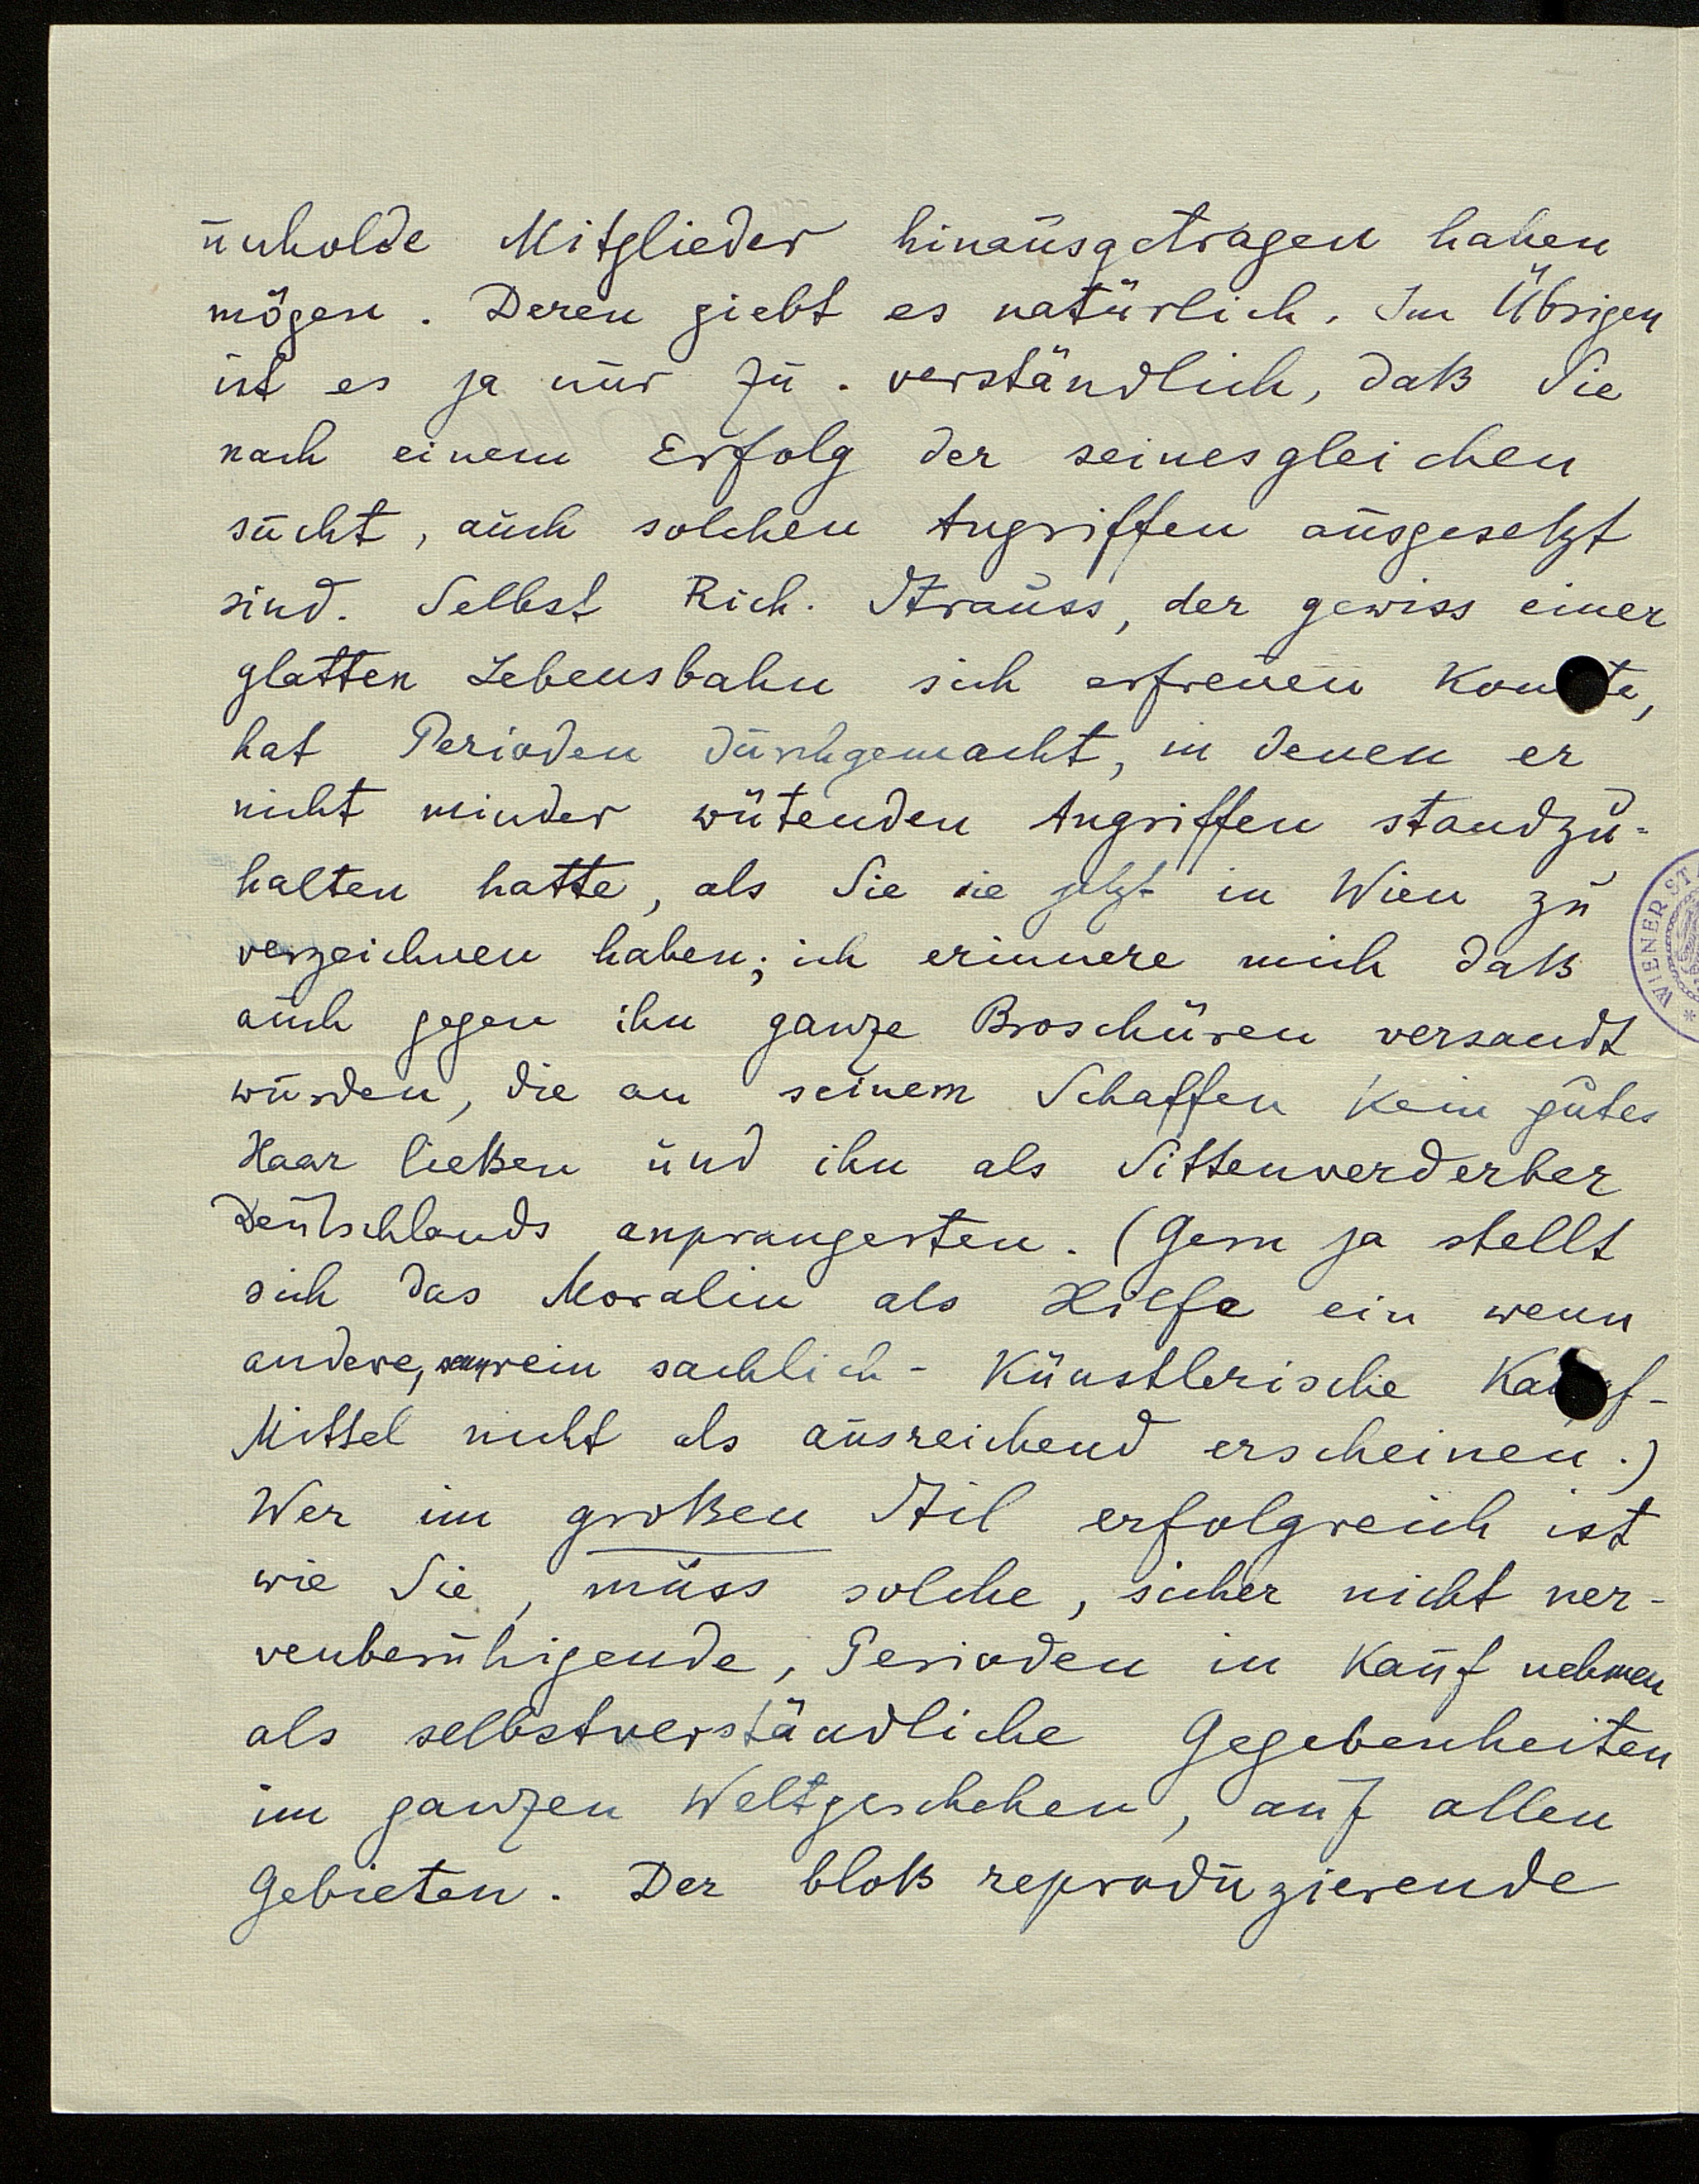 unholde Mitglieder hinausgetragen haben
mögen. Deren giebt es natürlich. Im Übrigen
ist es ja nur zu verständlich, daß Sie
nach einem Erfolg der seinesgleichen
sucht, auch solchen Angriffen ausgesetzt
sind. Selbst Rich. Strauss, der gewiss einer
glatten Lebensbahn sich erfreuen konnte,
hat Perioden durchgemacht, in denen er
nicht minder wütenden Angriffen standzu-
halten hatte, als Sie sie jetzt in Wien zu
verzeichnen haben; ich erinnere mich daß
auch gegen ihn ganze Broschüren versandt
wurden, die an seinem Schaffen kein gutes
Haar ließen und ihn als Sittenverderber
Deutschlands anprangerten. (Gern ja stellt
sich das Moralin als Hilfe ein wenn
andere, rein sachlich-künstlerische Kampf-
Mittel nicht als ausreichend erscheinen.)
Wer im großen Stil erfolgreich ist
wie Sie, muss solche, sicher nicht ner-
venberuhigende, Perioden in Kauf nehmen
als selbstverständliche Gegebenheiten
im ganzen Weltgeschehen, auf allen
Gebieten. Der bloß reproduzierende
WIENER ST